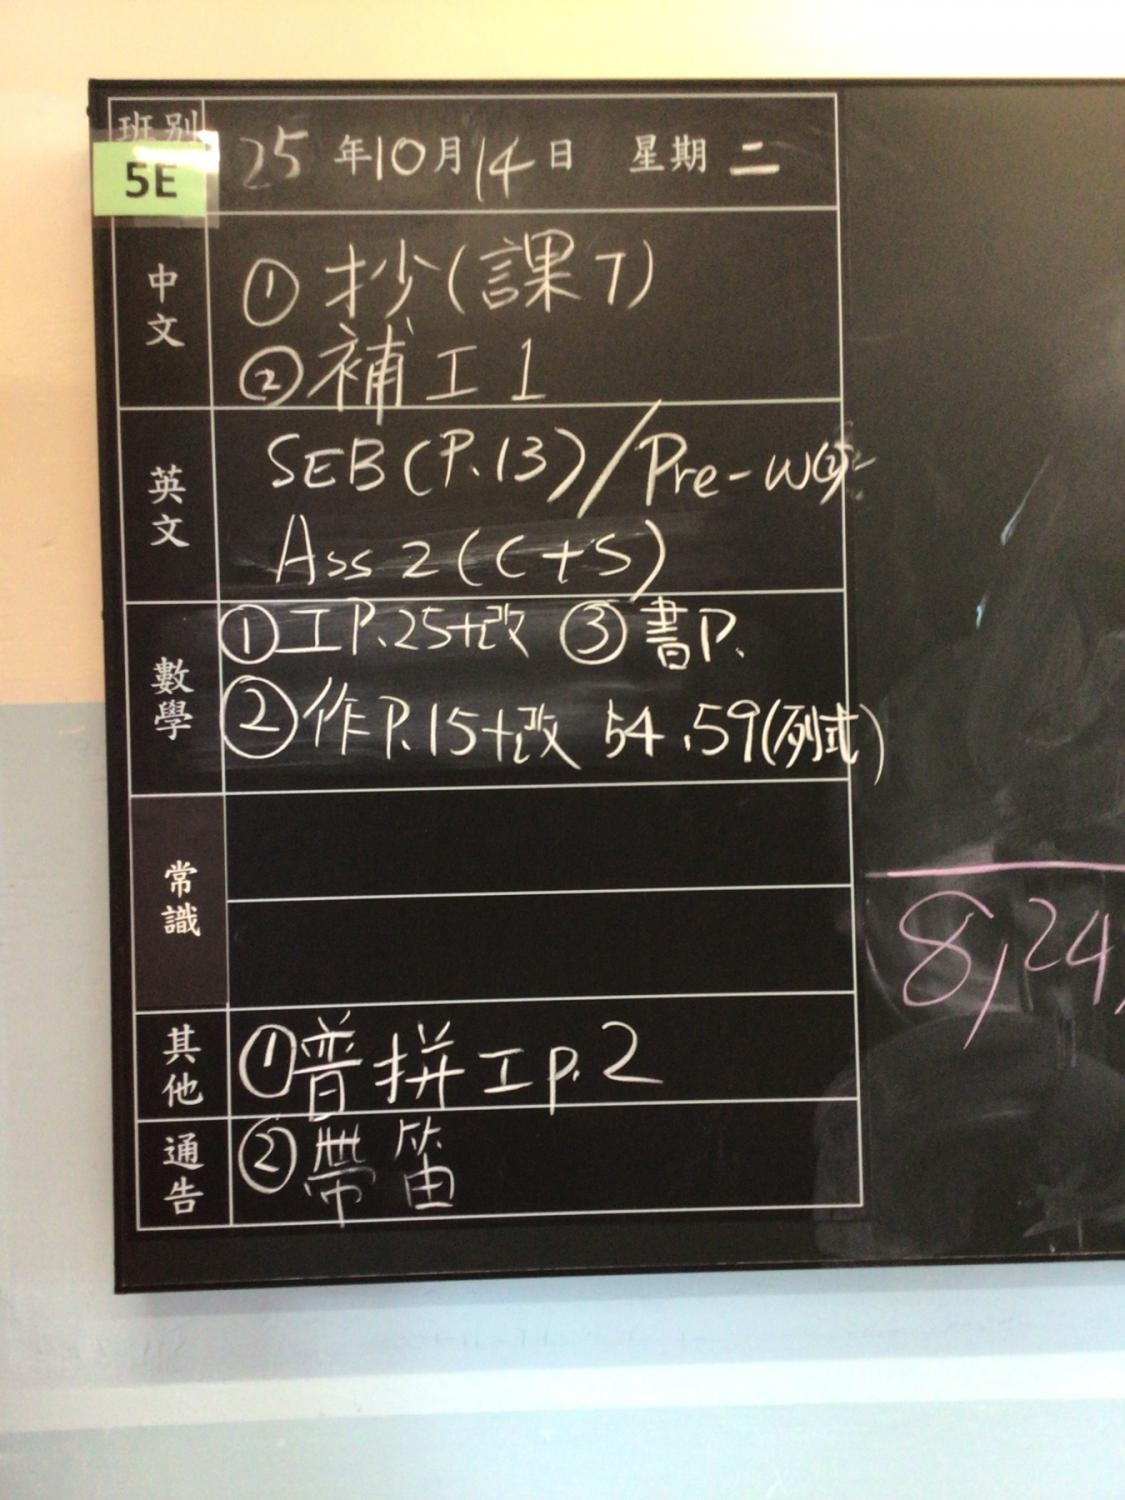 班別
5E
25年10月14日 星期二
中文
① 抄(課7)
② 補工1
英文
SEB(P.13)/Pre-w
Ass 2(C+S)
數學
① 工P.25+改 ③ 書P.
② 作P.15+改 54.59(列式)
常識
8,24,
其他
① 普拼工p.2
通告
② 帶笛